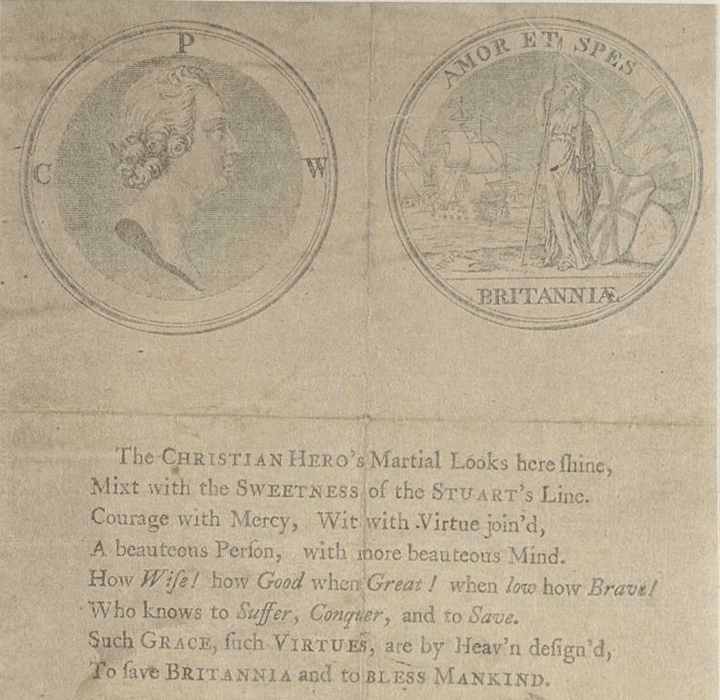 P
C
W
AMOR ET SPES
BRITANNIÆ
The CHRISTIAN HERO's Martial Looks here ſhine,
Mixt with the SWEETNESS of the STUART's Line.
Courage with Mercy, Wit with Virtue join'd,
A beauteous Perſon, with more beauteous Mind.
How Wiſe! how Good when Great! when low how Brave!
Who knows to Suffer, Conquer, and to Save.
Such GRACE, ſuch VIRTUES, are by Heav'n deſign'd,
To ſave BRITANNIA and to BLESS MANKIND.